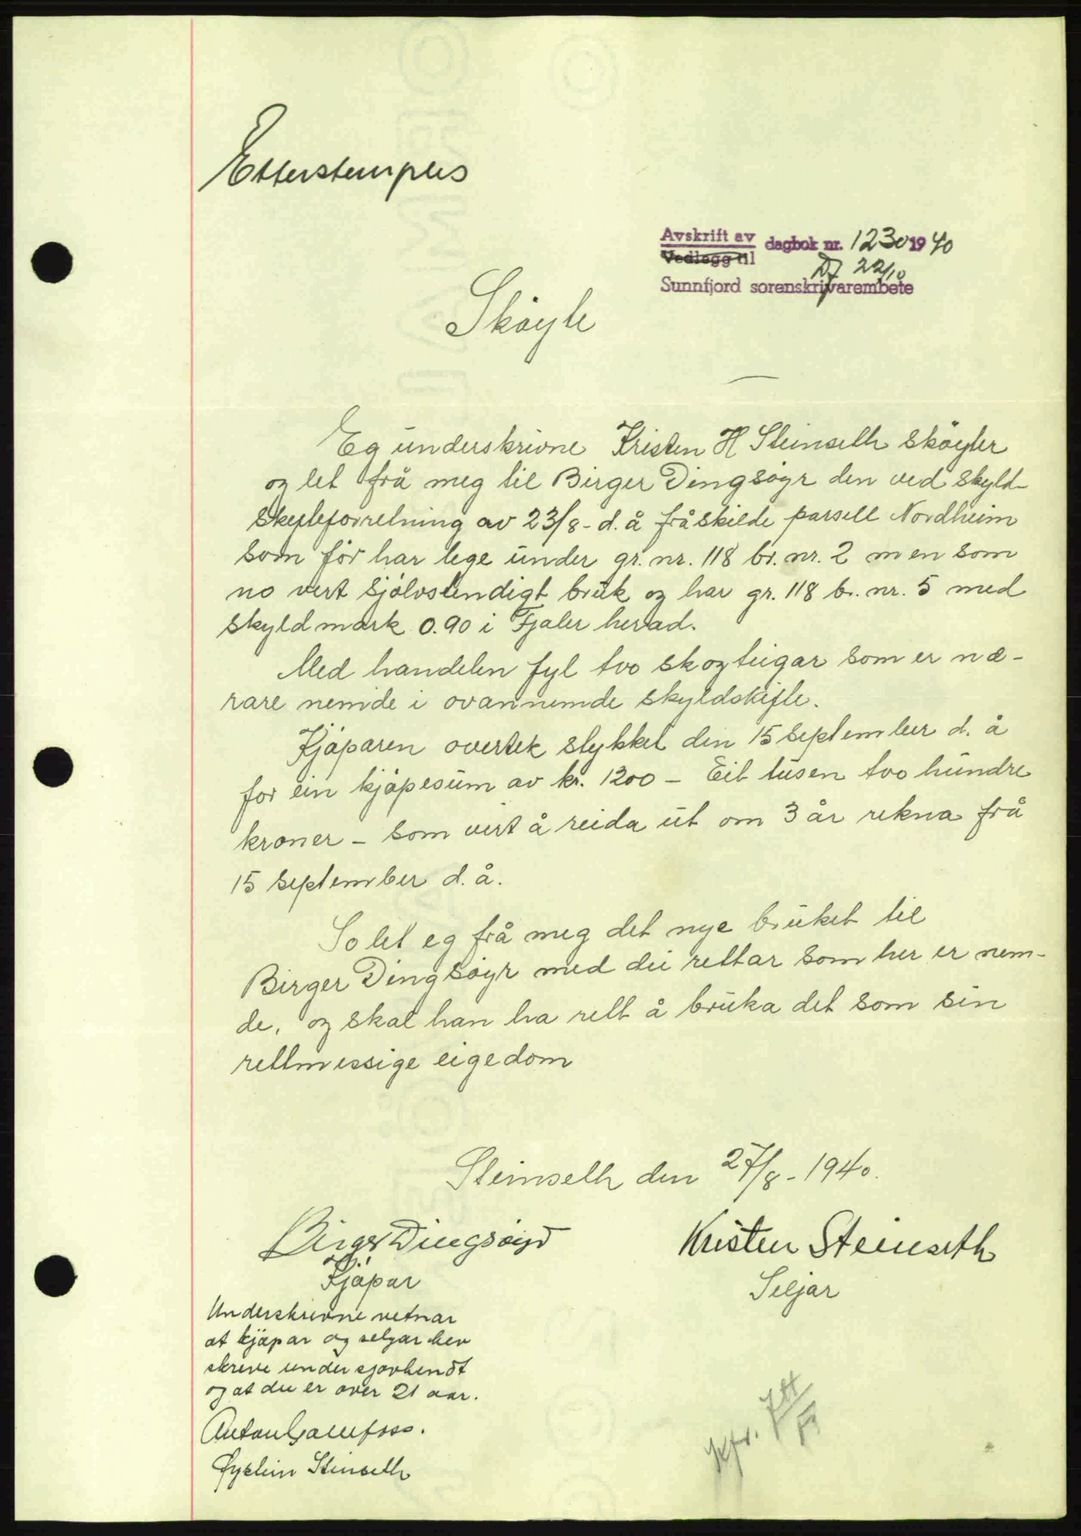 Etterstemples
Avskrift av dagbok nr. 1230 1940
Vedlegg til
22/10
Sunnfjord sorenskrivarembete
Skøyte
Eg underskrivne Kristen H Steinseth skøyter
og let frå meg til Birger Dingsøyr den ved skyld-
skeyteforretning av 23/8 - d. å fråskilde parsell Nordheim
som før har lege under gr. nr. 118 br. nr. 2 men som
no vert sjølvstendigt bruk og har gr. 118 br. nr. 5 med
skyldmark 0.90 i Fjaler herad.
Med handelen fyl tvo skogteigar som er næ-
rare nemde i ovannemde skyldskifte.
Kjøparen overtek stykket den 15 september d. å
for ein kjøpesum av kr. 1200 - Eit tusen tvo hundre
kroner - som vert å reida ut om 3 år rekna frå
15 september d. å.
So let eg frå meg det nye bruket til
Birger Dingsøyr med dei rettar som her er nem-
de, og skal han ha rett å bruka det som sin
rettmessige eigedom
Steinseth den 27/8 - 1940.
Birger Dingsøyr
Kjøpar
Kristen Steinseth
Seljar
Underskrivne vetnar
at kjøpar og selgar hev
skreve under sjøvhendt
og at dei er over 21 aar.
Steinseth
Jfr.